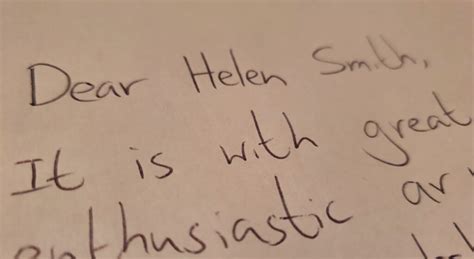 Dear Helen Smith,
It is with great
enthusiastic